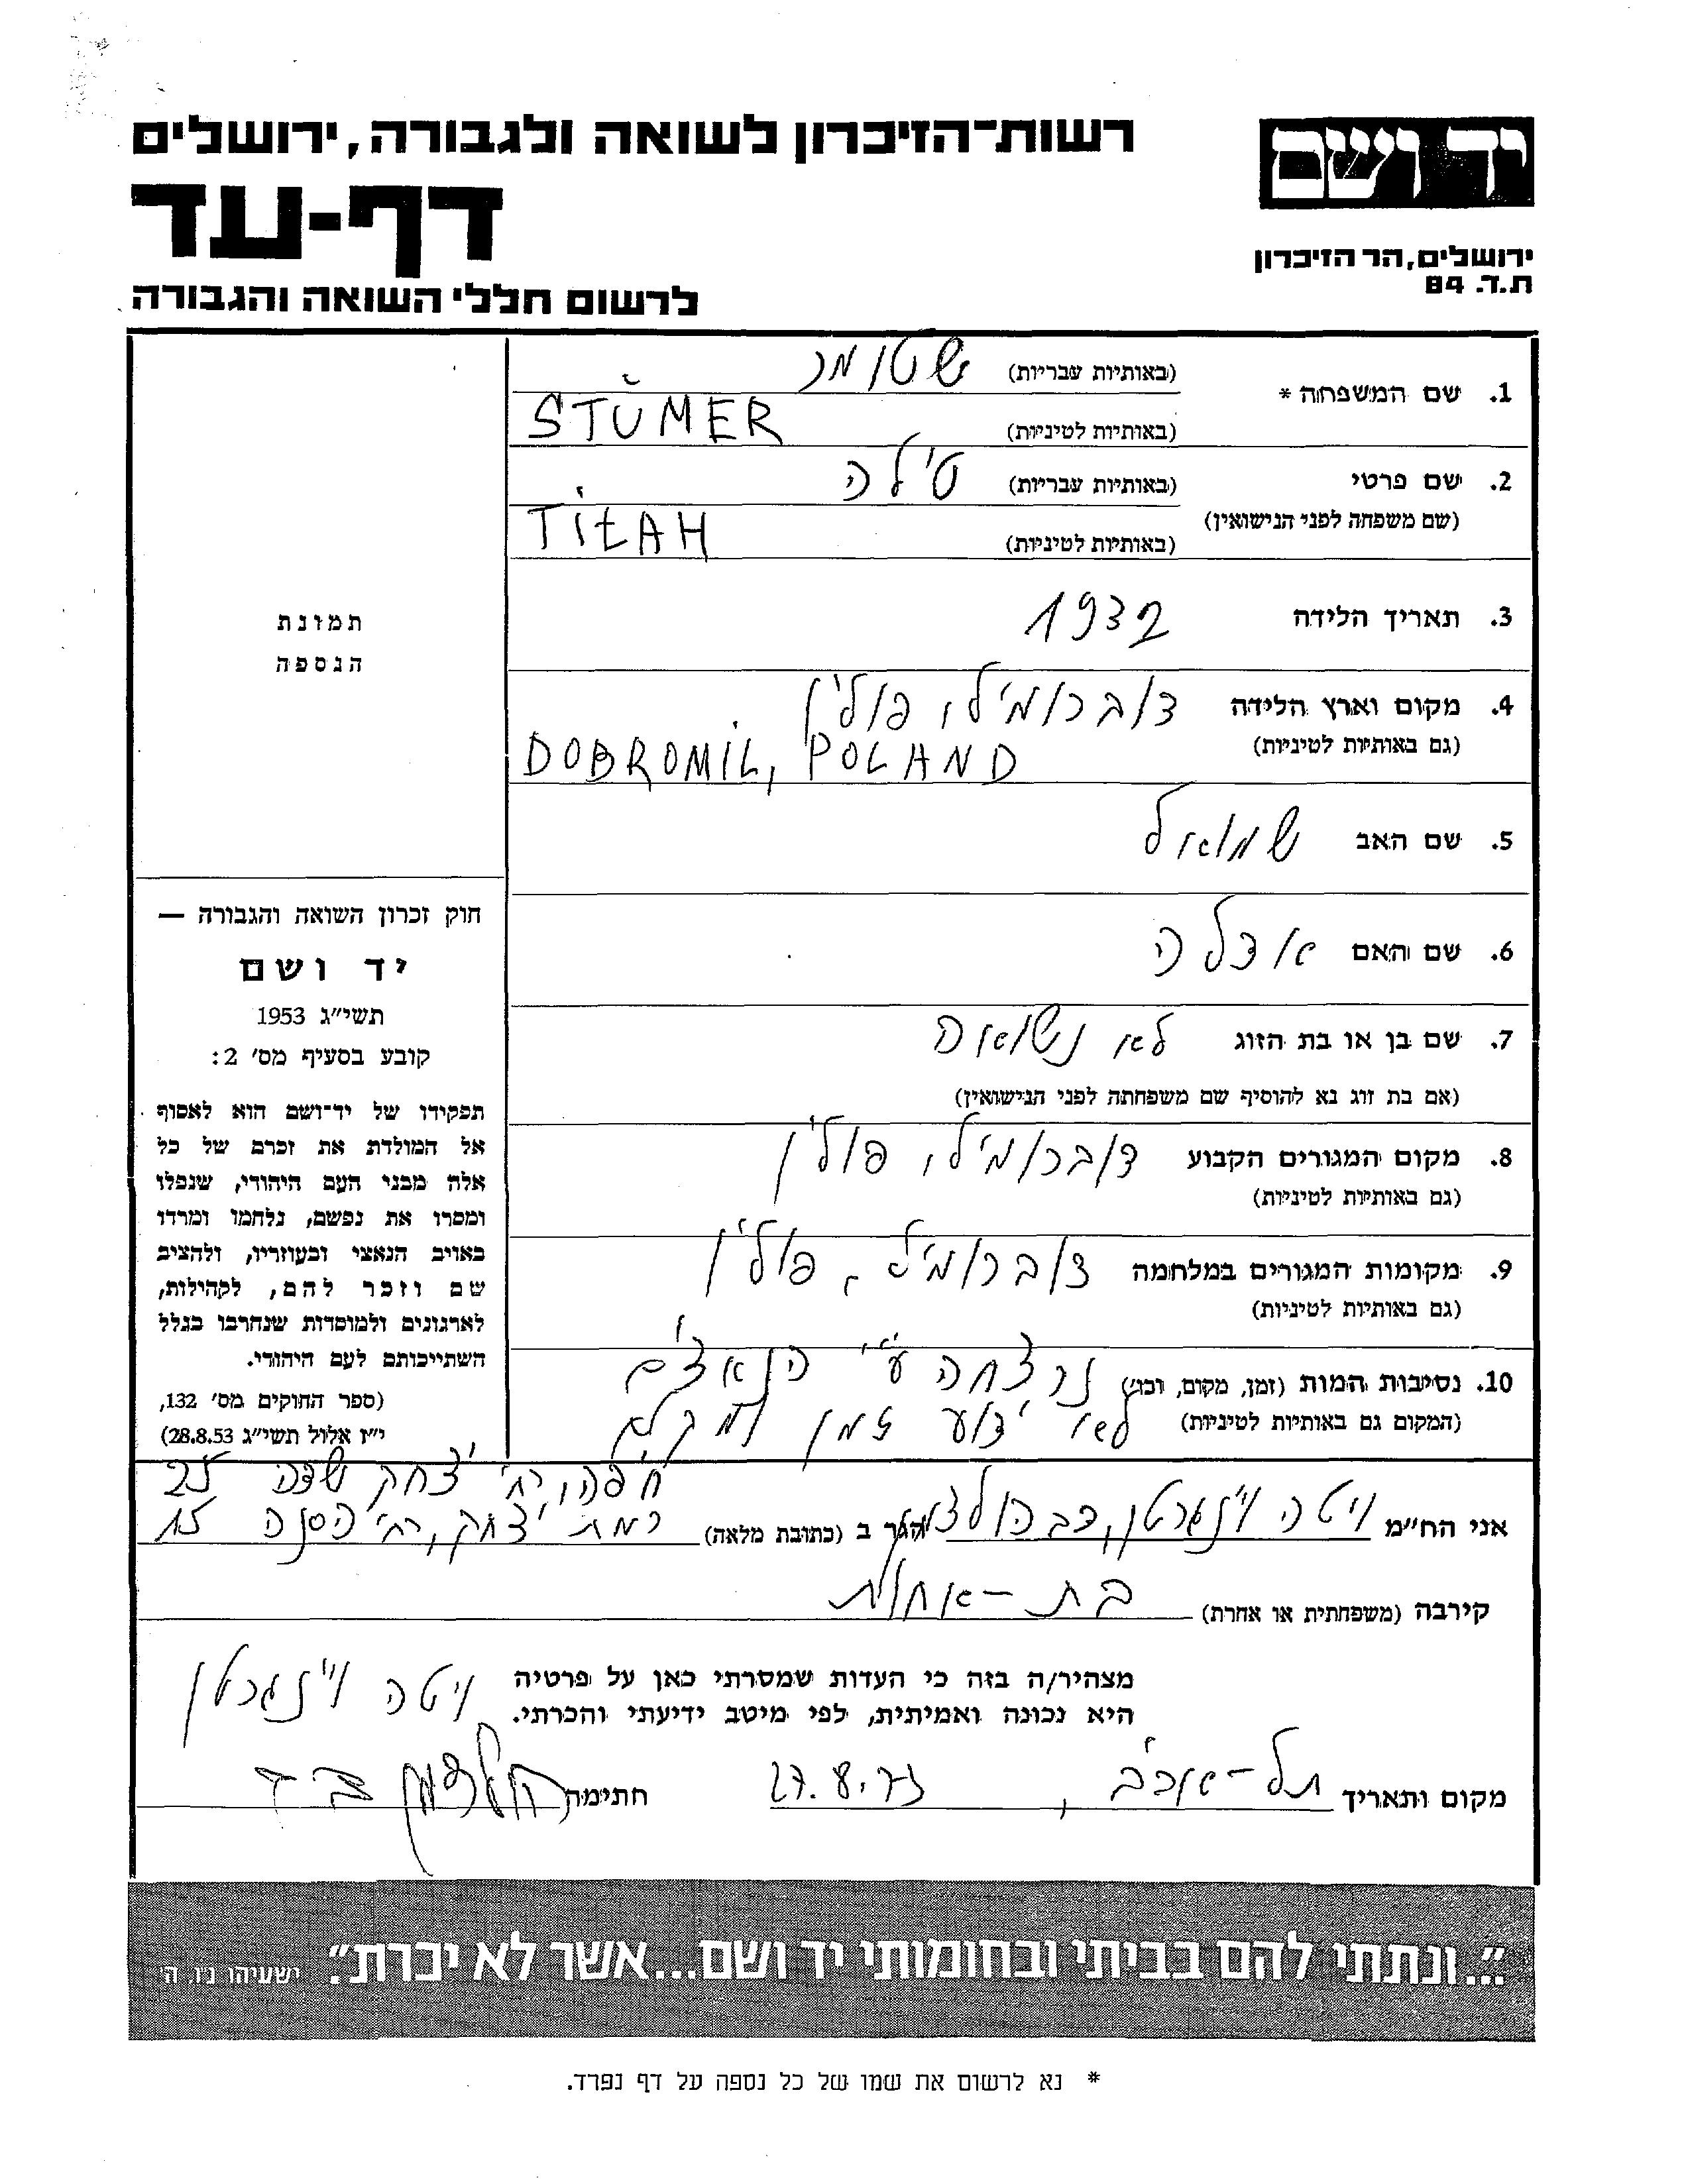 רשות־הזיכרון לשואה ולגבורה, ירושלים
יד ושם
דף-עד
ירושלים, הר הזיכרון
ת.ד. 84
לרשום חללי השואה והגבורה
1. שם המשפחה * (באותיות עבריות) שטומר
(באותיות לטיניות) STUMER
2. שם פרטי (באותיות עבריות) טילה
(שם משפחה לפני הנישואין)
(באותיות לטיניות) TIŁAH
3. תאריך הלידה 1932
4. מקום וארץ הלידה דוברומיל, פולין
(גם באותיות לטיניות) DOBROMIL, POLAND
5. שם האב שמואל
6. שם האם אדלה
7. שם בן או בת הזוג לא נשואה
(אם בת זוג נא להוסיף שם משפחתה לפני הנישואין)
8. מקום המגורים הקבוע דוברומיל, פולין
(גם באותיות לטיניות)
9. מקומות המגורים במלחמה דוברומיל, פולין
(גם באותיות לטיניות)
10. נסיבות המות (זמן, מקום, וכו׳) נרצחה ע״י הנאצים
(המקום גם באותיות לטיניות) לא ידוע זמן ומקום
תמונת
הנספה
חוק זכרון השואה והגבורה —
יד ושם
תשי״ג 1953
קובע בסעיף מס׳ 2:
תפקידו של יד־ושם הוא לאסוף
אל המולדת את זכרם של כל
אלה מבני העם היהודי, שנפלו
ומסרו את נפשם, נלחמו ומרדו
באויב הנאצי ובעוזריו, ולהציב
שם וזכר להם, לקהילות,
לארגונים ולמוסדות שנחרבו בגלל
השתייכותם לעם היהודי.
(ספר החוקים מס׳ 132,
י״ז אלול תשי״ג 28.8.53)
חיפה, רח׳ יצחק שדה 25
אני הח״מ ויטה וינגרטן, הגר ב (כתובת מלאה) רמת יצחק, רח׳ הסנה 15
קירבה (משפחתית או אחרת) בת-אחות
מצהיר/ה בזה כי העדות שמסרתי כאן על פרטיה
היא נכונה ואמיתית, לפי מיטב ידיעתי והכרתי. ויטה וינגרטן
מקום ותאריך תל-אביב, 27.8. חתימה
"...ונתתי להם בביתי ובחומותי יד ושם...אשר לא יכרת". ישעיהו נ״ו, ה׳
* נא לרשום את שמו של כל נספה על דף נפרד.